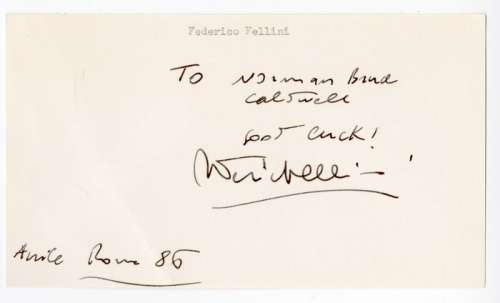 Federico Fellini
To Norman Brad
Caldwell
Good luck!
Roma 86